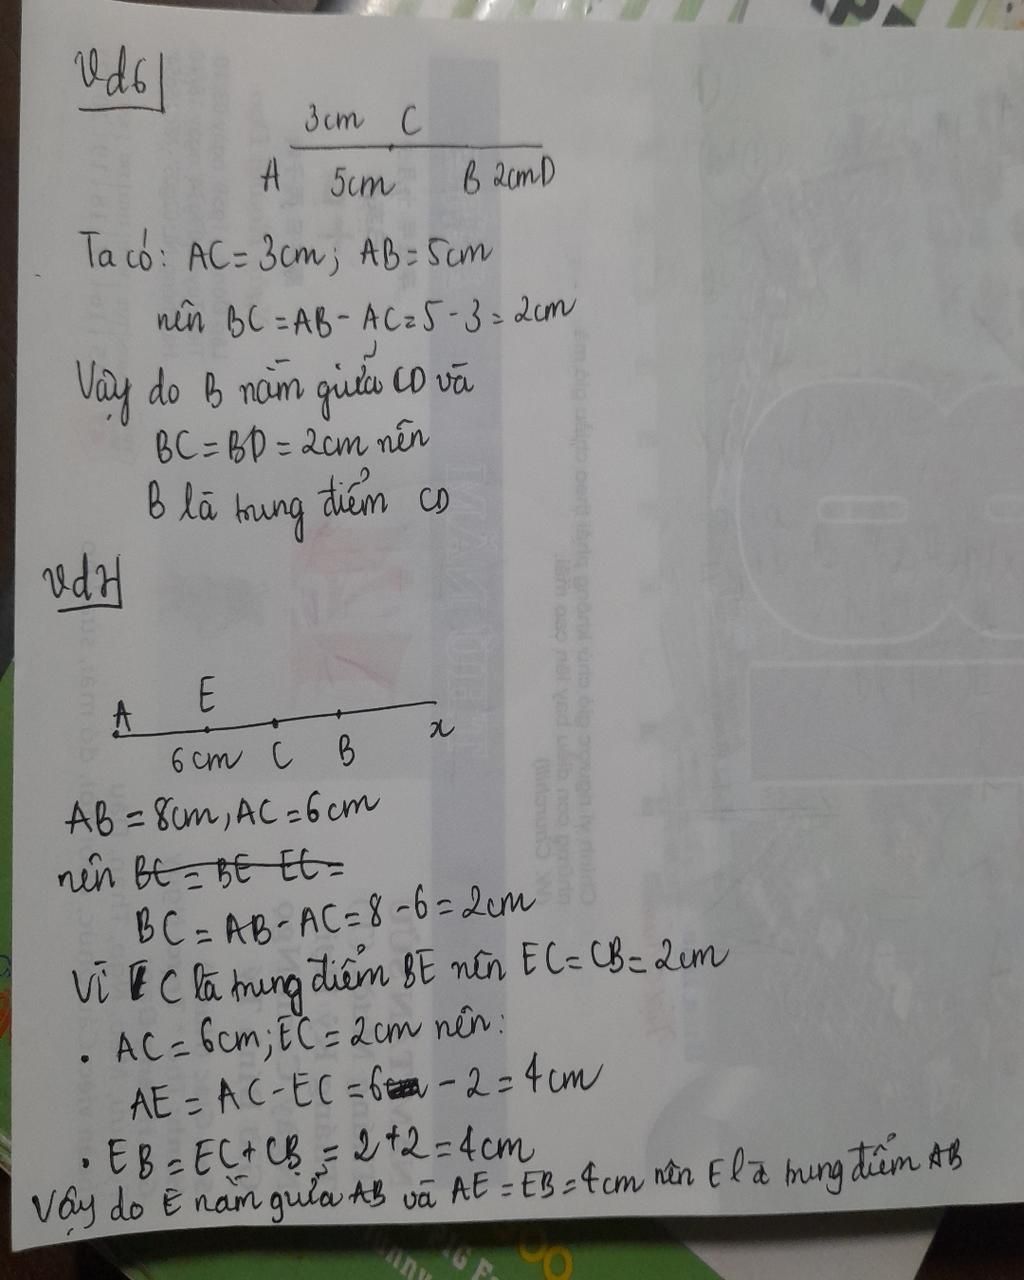 Vd6
3cm C
A 5cm B 2cm D
Ta có: AC = 3cm; AB = 5cm
nên BC = AB - AC = 5 - 3 = 2cm
Vậy do B nằm giữa CD và
BC = BD = 2cm nên
B là trung điểm CD
Vd7
A E
6cm C B x
AB = 8cm, AC = 6cm
nên BC = BE EC =
BC = AB - AC = 8 - 6 = 2cm
Vì C là trung điểm BE nên EC = CB = 2cm
. AC = 6cm; EC = 2cm nên:
AE = AC - EC = 6 - 2 = 4cm
. EB = EC + CB = 2 + 2 = 4cm
Vậy do E nằm giữa AB và AE = EB = 4cm nên E là trung điểm AB
PIG Fa